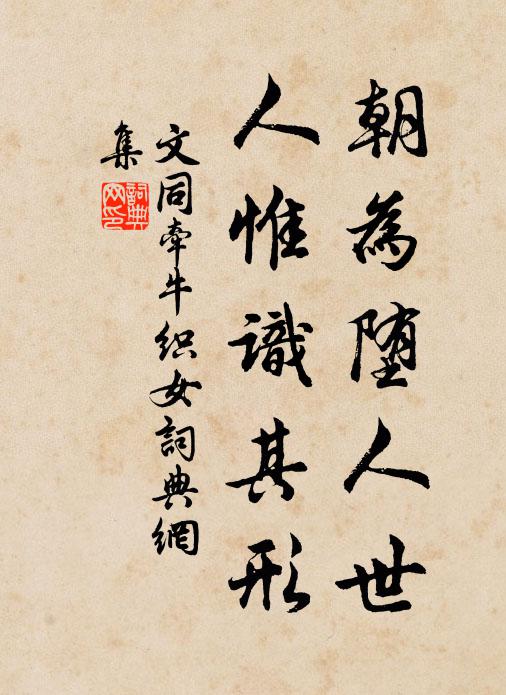 朝為堕人世
人惟識其形
文同牽牛织女詞典網
集
詞典
网印